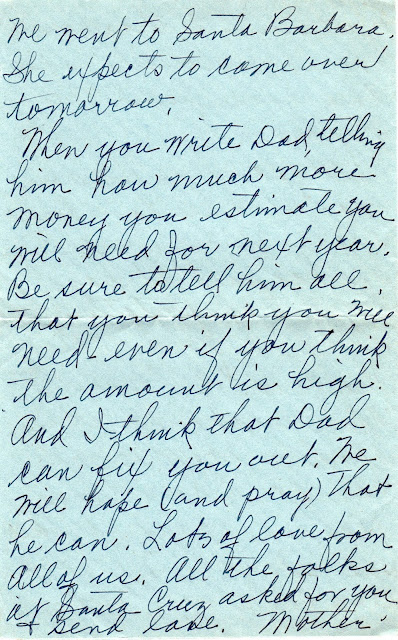 we went to Santa Barbara.
She expects to come over
tomorrow.
When you write Dad, telling
him how much more
money you estimate you
will need for next year.
Be sure to tell him all
that you think you will
need even if you think
the amount is high.
And I think that Dad
can fix you out. We
will hope (and pray) that
he can. Lots of love from
all of us. All the folks
at Santa Cruz asked for you
+ send love. Mother.